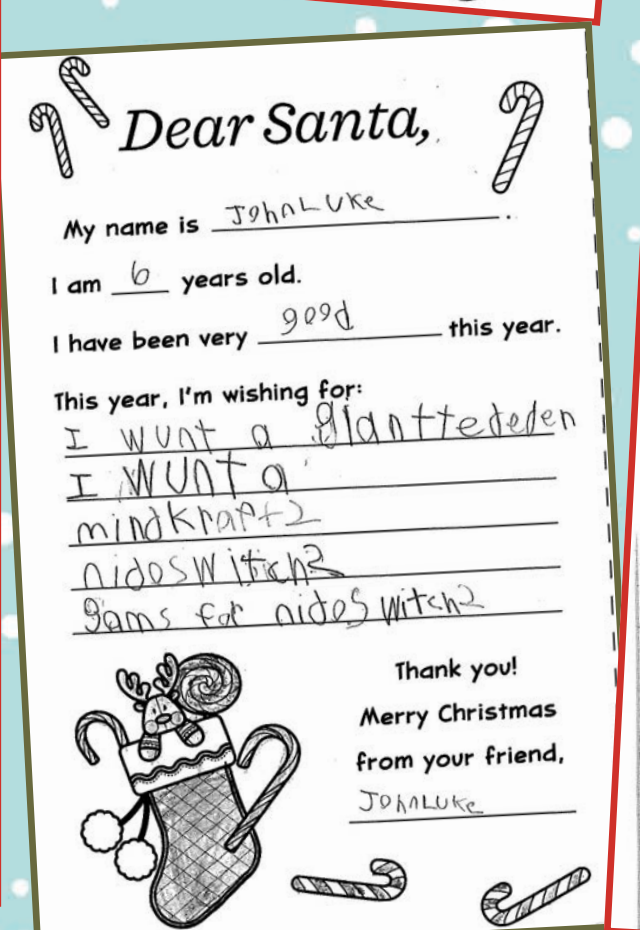 Dear Santa,
My name is JohnLUKe.
I am 6 years old.
I have been very good this year.
This year, I'm wishing for:
I wunt a glanttededen
I WUnT a
mindKraft2
nidoswitich2
gams for nidoswitch2
Thank you!
Merry Christmas
from your friend,
JohnLUKe